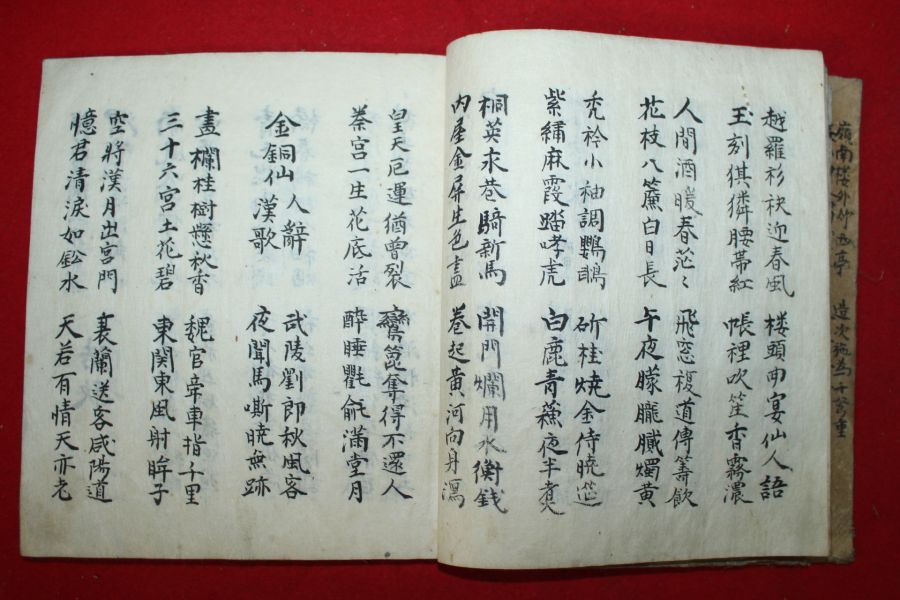 嶺南楼外竹西亭 造次施為千萬重
越羅衫袂迎春風
玉刻猉獜腰帶紅
楼頭曲宴仙人語
帳裡吹笙香霧濃
人間酒暖春茫〻
花枝八簾白日長
飛窓複道傳籌飲
午夜朦朧膩燭黃
禿衿小袖調鸚鵡
紫繡麻霞踏哮虎
斫桂燒金侍曉筵
白鹿青蘓夜半煮
桐英永巷騎新馬
內屋金屏生色畫
開門爛用水衡錢
卷起黃河向身瀉
皇天厄運猶曾裂
秦宮一生花底活
鸞篦奪得不還人
醉睡氍毹滿堂月
金銅仙人辭漢歌
武陵劉郎秋風客
夜聞馬嘶曉無跡
畫欄桂樹懸秋香
三十六宮土花碧
魏官牽車指千里
東関東風射眸子
空將漢月出宮門
憶君清淚如鈆水
衰蘭送客咸陽道
天若有情天亦老